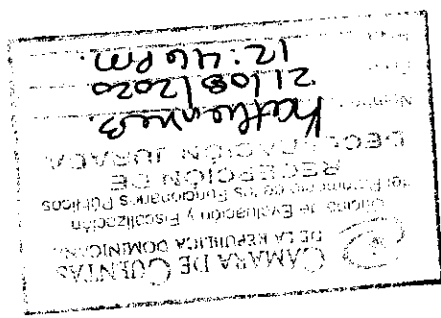 CÁMARA DE CUENTAS
DE LA REPÚBLICA DOMINICANA
Oficina de Evaluación y Fiscalización
del Patrimonio de los Funcionarios Públicos
RECEPCIÓN DE
DECLARACIÓN JURADA
21/08/2020
12:46 pm.